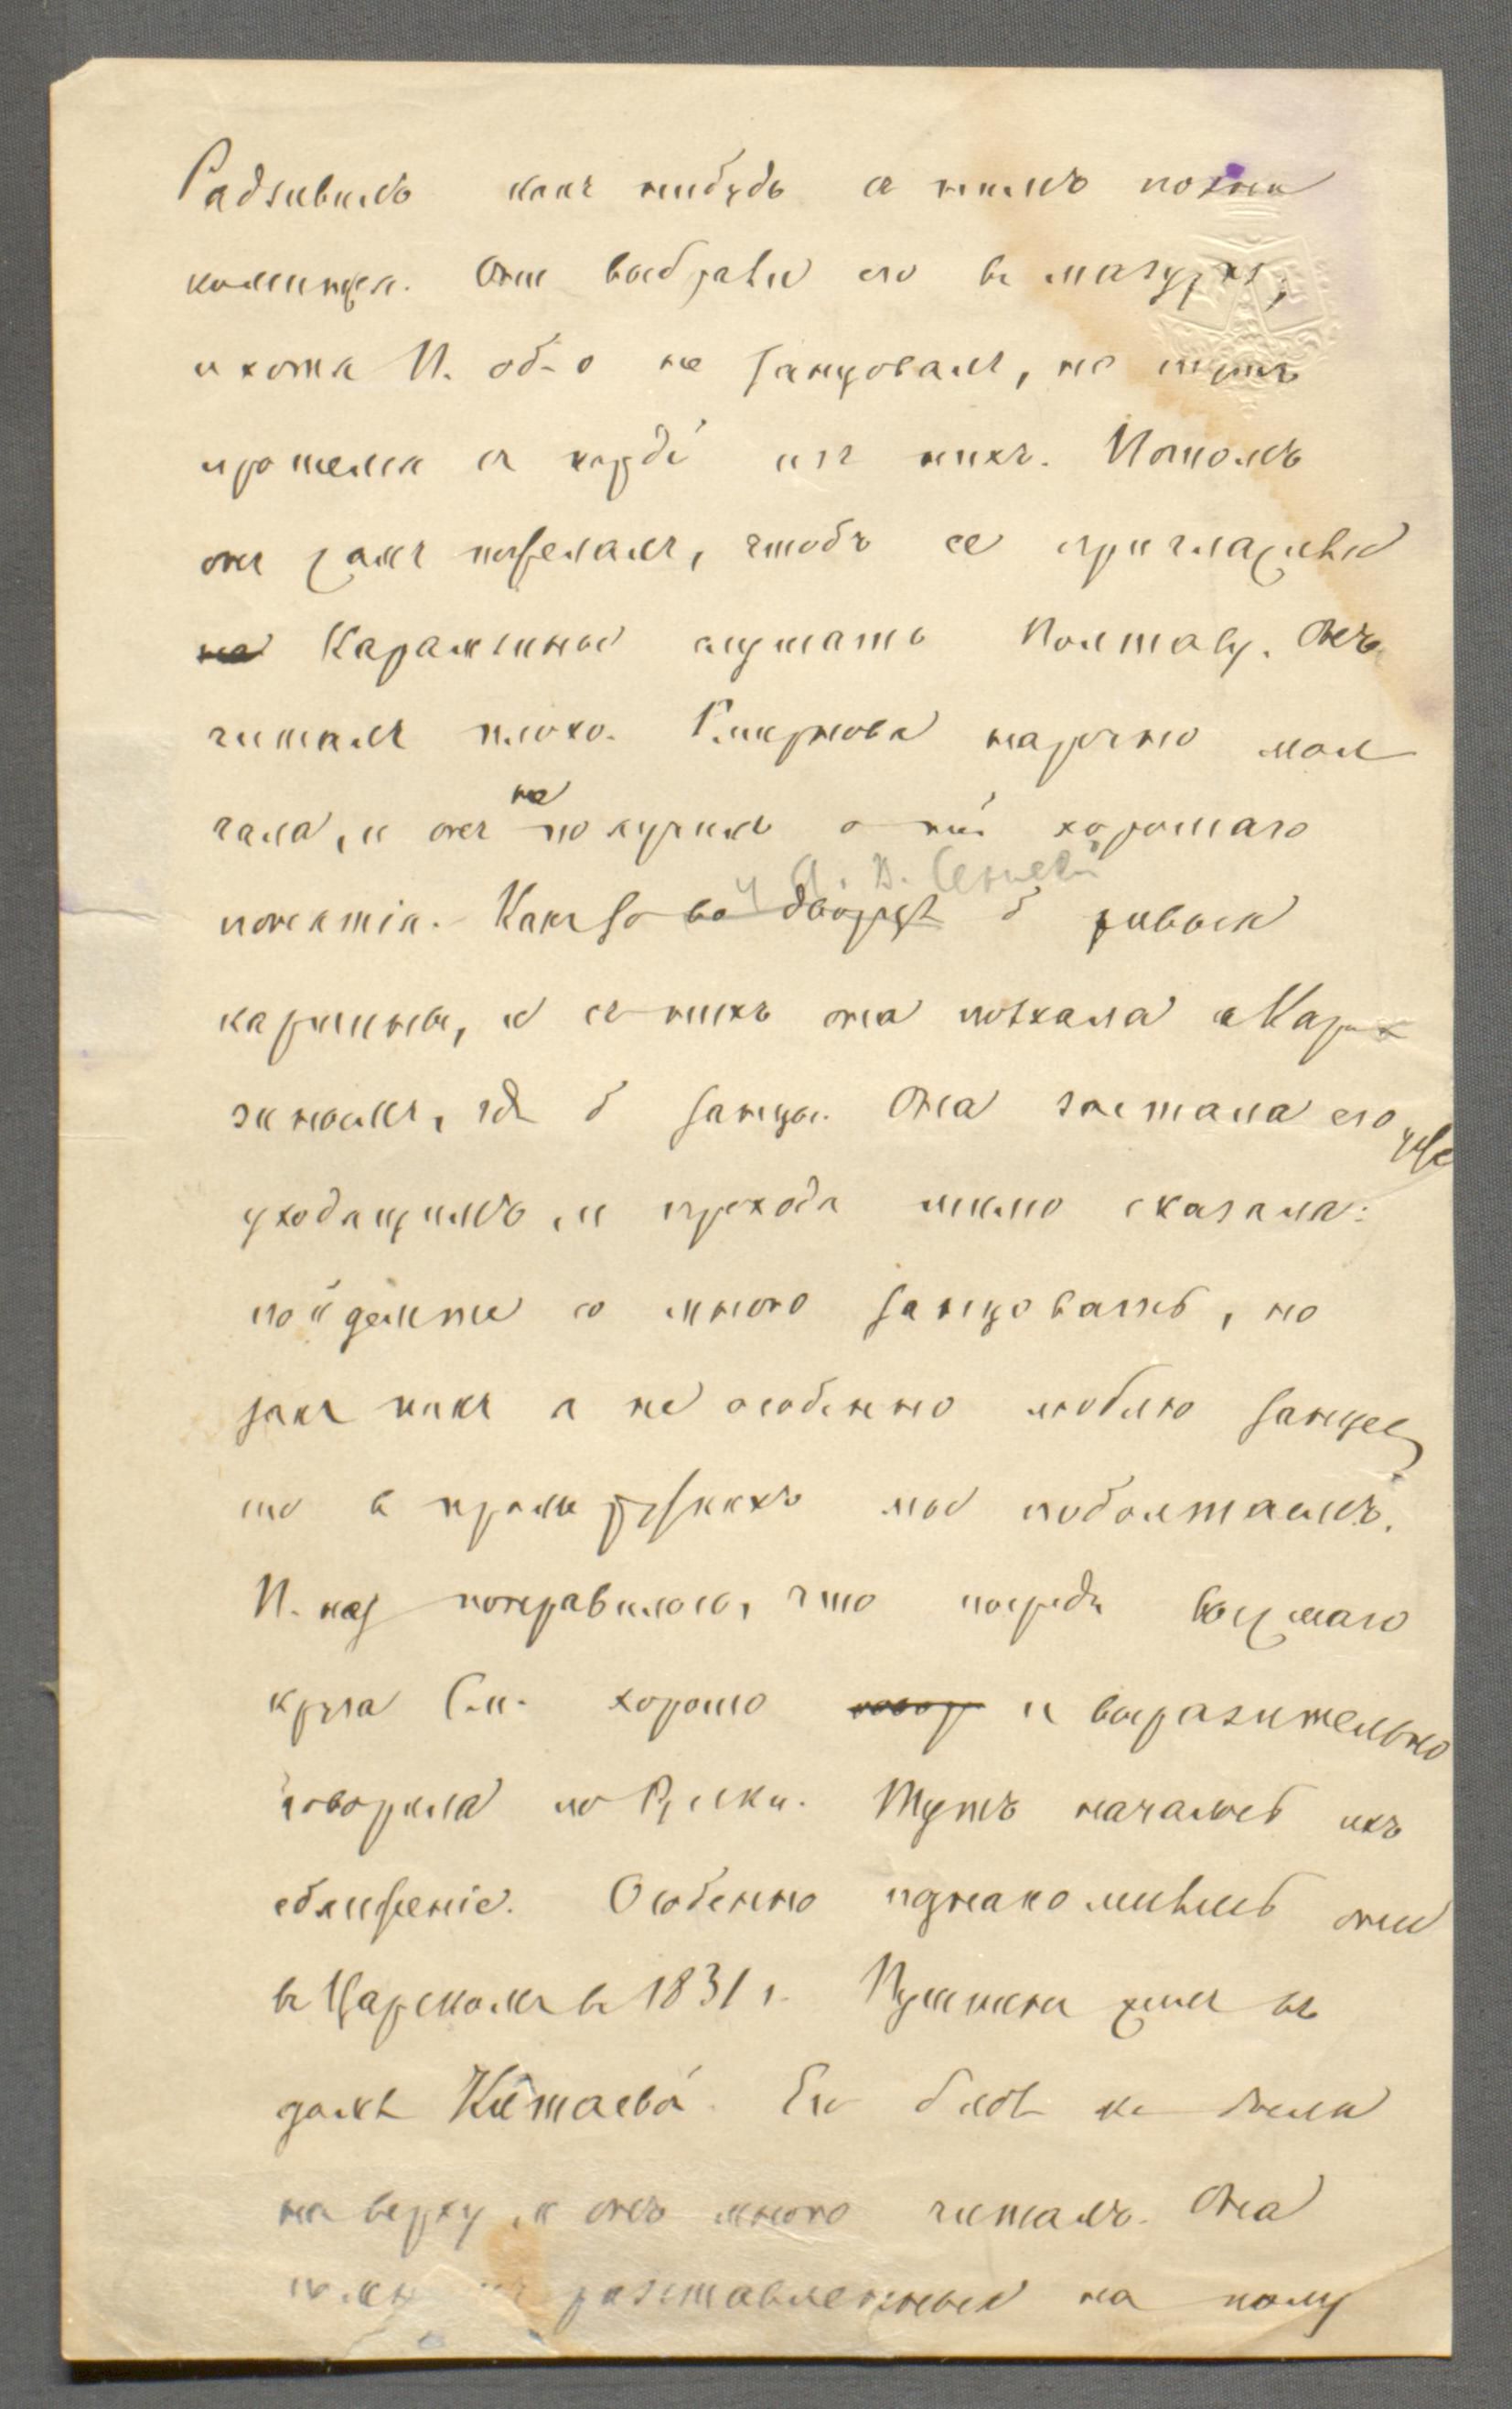 Радзивилъ какъ нибудь съ нимъ позна
комиться. Они выбрали его въ мазуркѣ,
и хотя П. об-о не танцовалъ, но тутъ
прошелся съ каждой изъ нихъ. Потомъ
онъ самъ пожелалъ, чтобъ ее пригласили
на Карамзины слушать Полтаву. Онъ
читалъ плохо. Смирнова нарочно мол
чала, и онъ не получилъ о ней хорошаго
понятія. Какъ то во дворцѣ б живыя
у А. В. Сенявиной
картины, и съ нихъ она поѣхала къ Карам
зинымъ, гдѣ б танцы. Она застала его уже
уходящимъ, и проходя мимо сказала:
пойдемте со мною танцовать, но
такъ какъ я не особенно люблю танцев
то въ промежуткахъ мы поболтаемъ.
П. понравилось, что посреди высшаго
круга См. хорошо говор и выразительно
говорила по Русски. Тутъ началось ихъ
сближеніе. Особенно познакомились они
въ Царскомъ въ 1831 г. Пушкинъ жилъ въ
домѣ Китаевой. Его библ-ка была
на верху, и онъ много читалъ. Она
разставленныя на полу